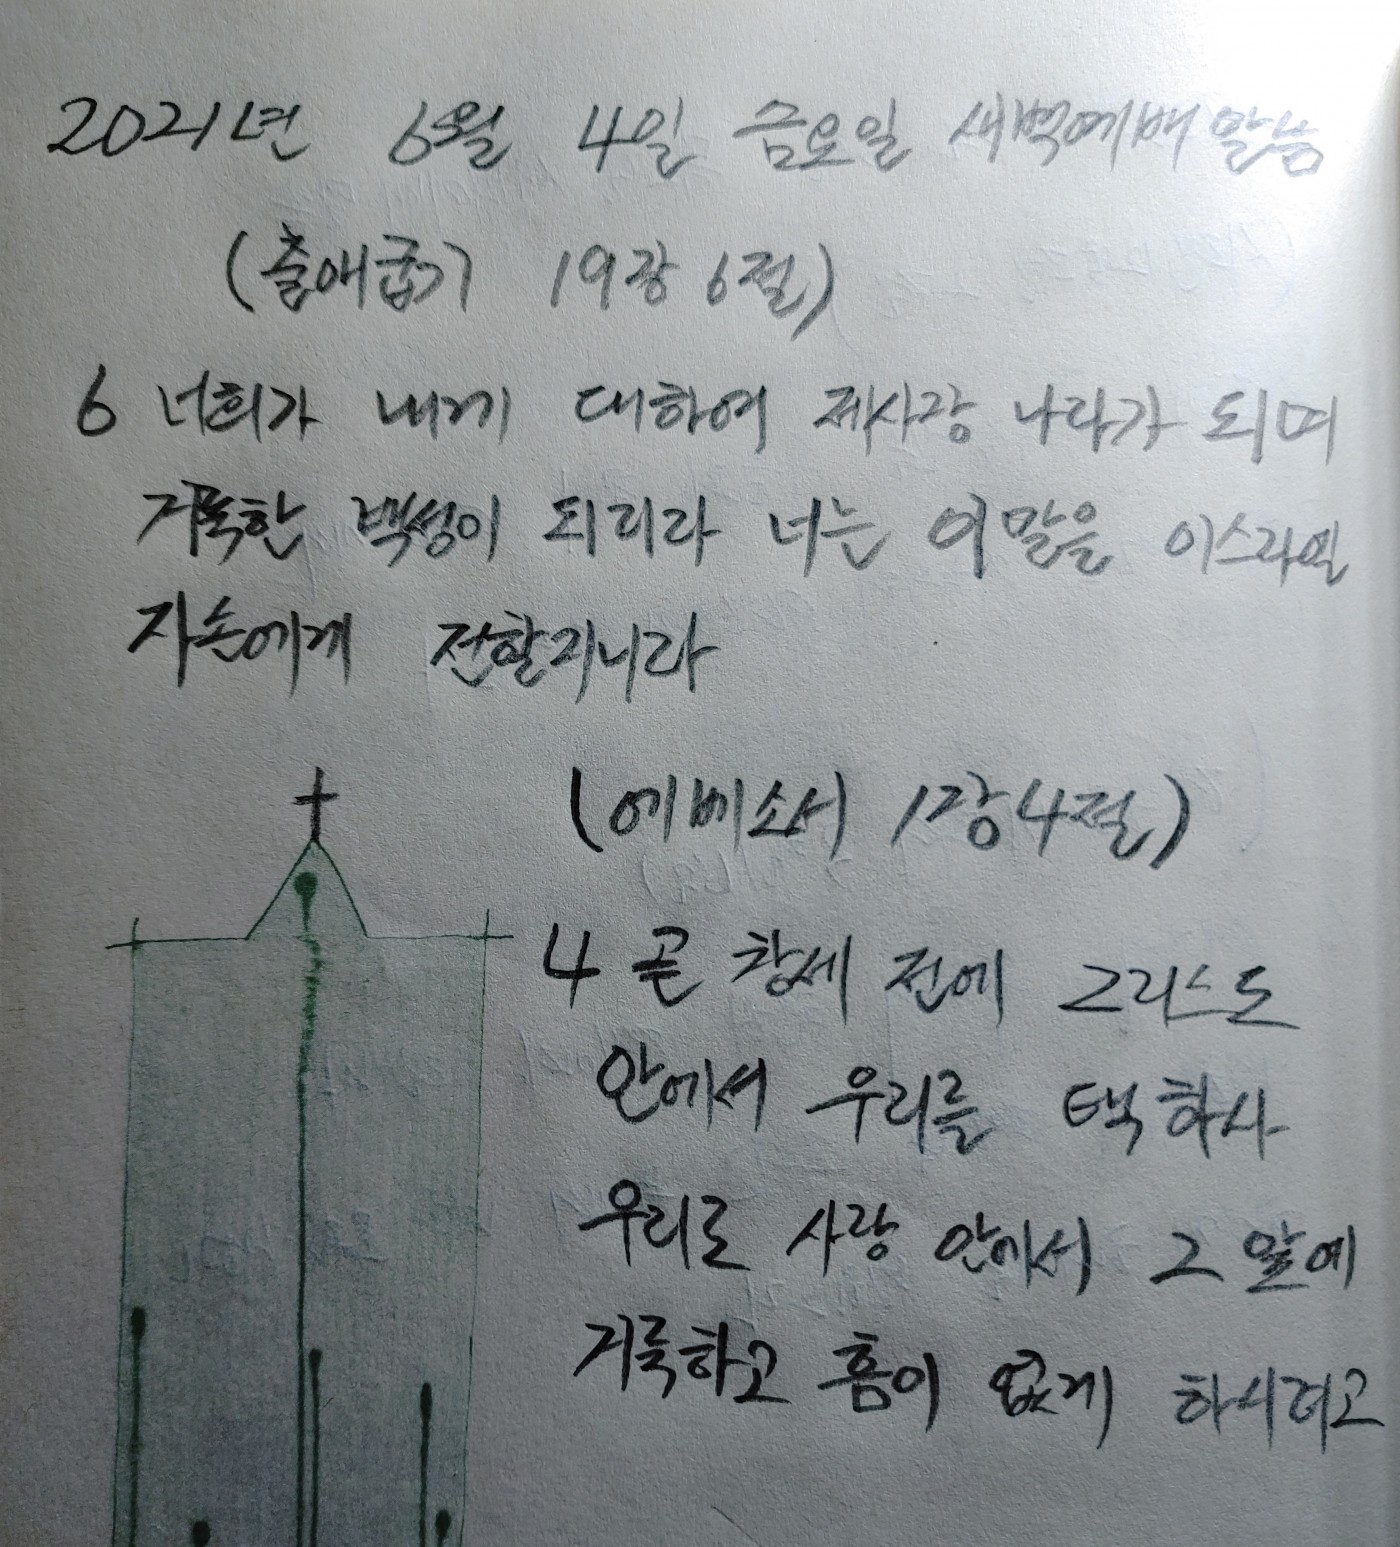 2021년 6월 4일 금요일 새벽예배 말씀
(출애굽기 19장 6절)
6 너희가 내게 대하여 제사장 나라가 되며
거룩한 백성이 되리라 너는 이 말을 이스라엘
자손에게 전할지니라
(에베소서 1장 4절)
4 곧 창세 전에 그리스도
안에서 우리를 택하사
우리로 사랑 안에서 그 앞에
거룩하고 흠이 없게 하시려고